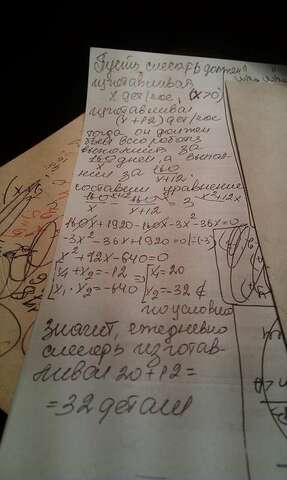 Пусть слесарь должен
изготавливал
x дет/час, (x>0)
изготавливал
(x+12) дет/час
тогда он должен
был всю работу
выполнить за
160/x дней, а выпол-
нил за 160/x+12.
составим уравнение
160/x - 160/x+12 = 3, x²+12x
160x+1920-160x-3x²-36x=0
-3x²-36x+1920=0 |:(-3)
x²+12x-640=0
x₁+x₂=-12 x₁=20
x₁·x₂=-640 x₂=-32 ∉
по условию
Значит, ежедневно
слесарь изготав-
ливал 20+12=
=32 детали